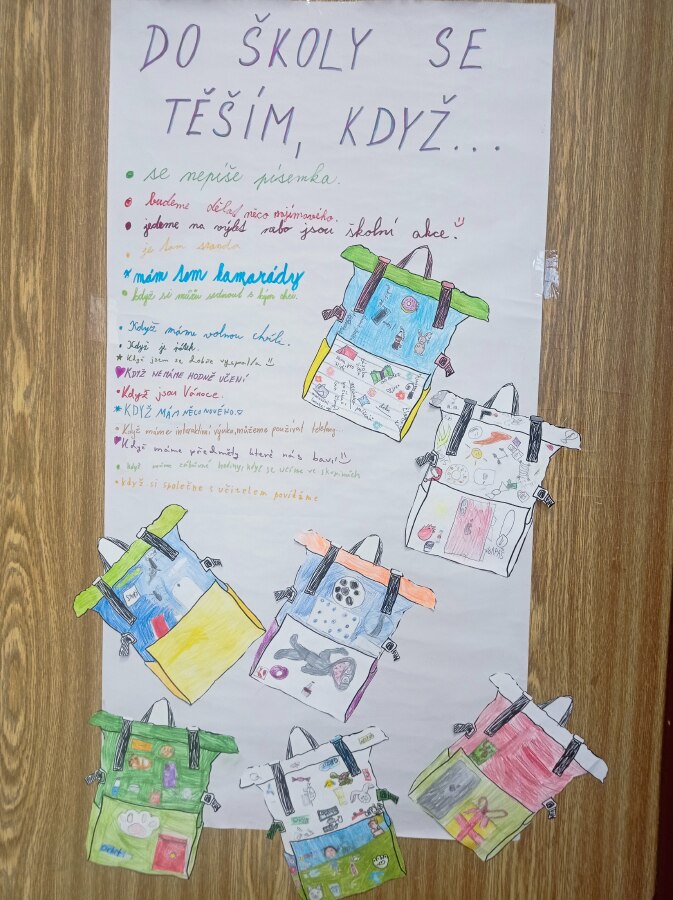 DO ŠKOLY SE
TĚŠÍM, KDYŽ...
se nepíše písemka.
budeme dělat něco zajímavého.
jedeme na výlet nebo jsou školní akce!
je tam sranda
mám tam kamarády
když si můžu sednout s kým chci.
Když máme volnou chvíli.
Když je pátek.
Když jsem se dobře vyspal/a
KDYŽ NEMÁME HODNĚ UČENÍ
Když jsou Vánoce.
KDYŽ MÁM NĚCO NOVÉHO.
Když máme interaktivní výuku, můžeme používat telefony...
Když máme předměty které nás baví!
Když máme zábavné hodiny, když se učíme ve skupinách
když si společně s učitelem povídáme